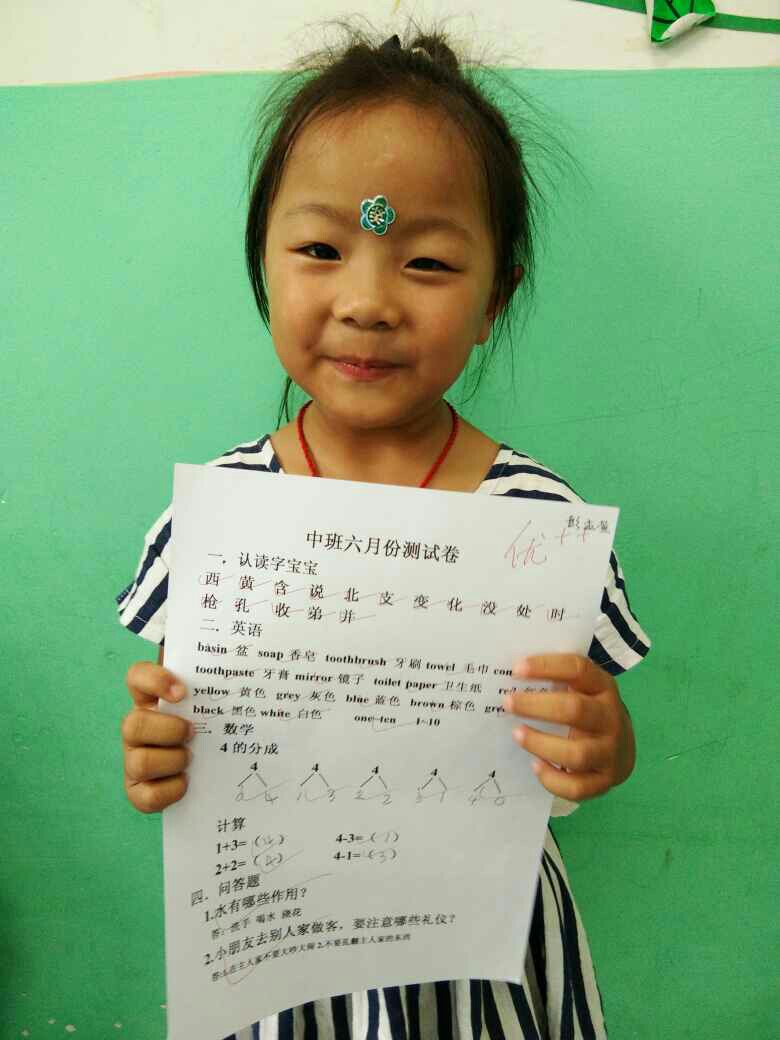 中班六月份测试卷
优++
一．认读字宝宝
西 黄 含 说 北 支 变 化 没 处 时
枪 孔 收 弟 并
二．英语
basin 盆 soap 香皂 toothbrush 牙刷 towel 毛巾
toothpaste 牙膏 mirror 镜子 toilet paper 卫生纸 red
yellow 黄色 grey 灰色 blue 蓝色 brown 棕色
black 黑色 white 白色 one-ten 1-10
三．数学
4 的分成
4 4 4 4 4
0 4 1 3 2 2 3 1 4 0
计算
1+3=（4） 4-3=（1）
2+2=（4） 4-1=（3）
四．问答题
1.水有哪些作用？
答：洗手 喝水 浇花
2.小朋友去别人家做客，要注意哪些礼仪？
答:1.在主人家不要大吵大闹 2.不要乱翻主人家的东西